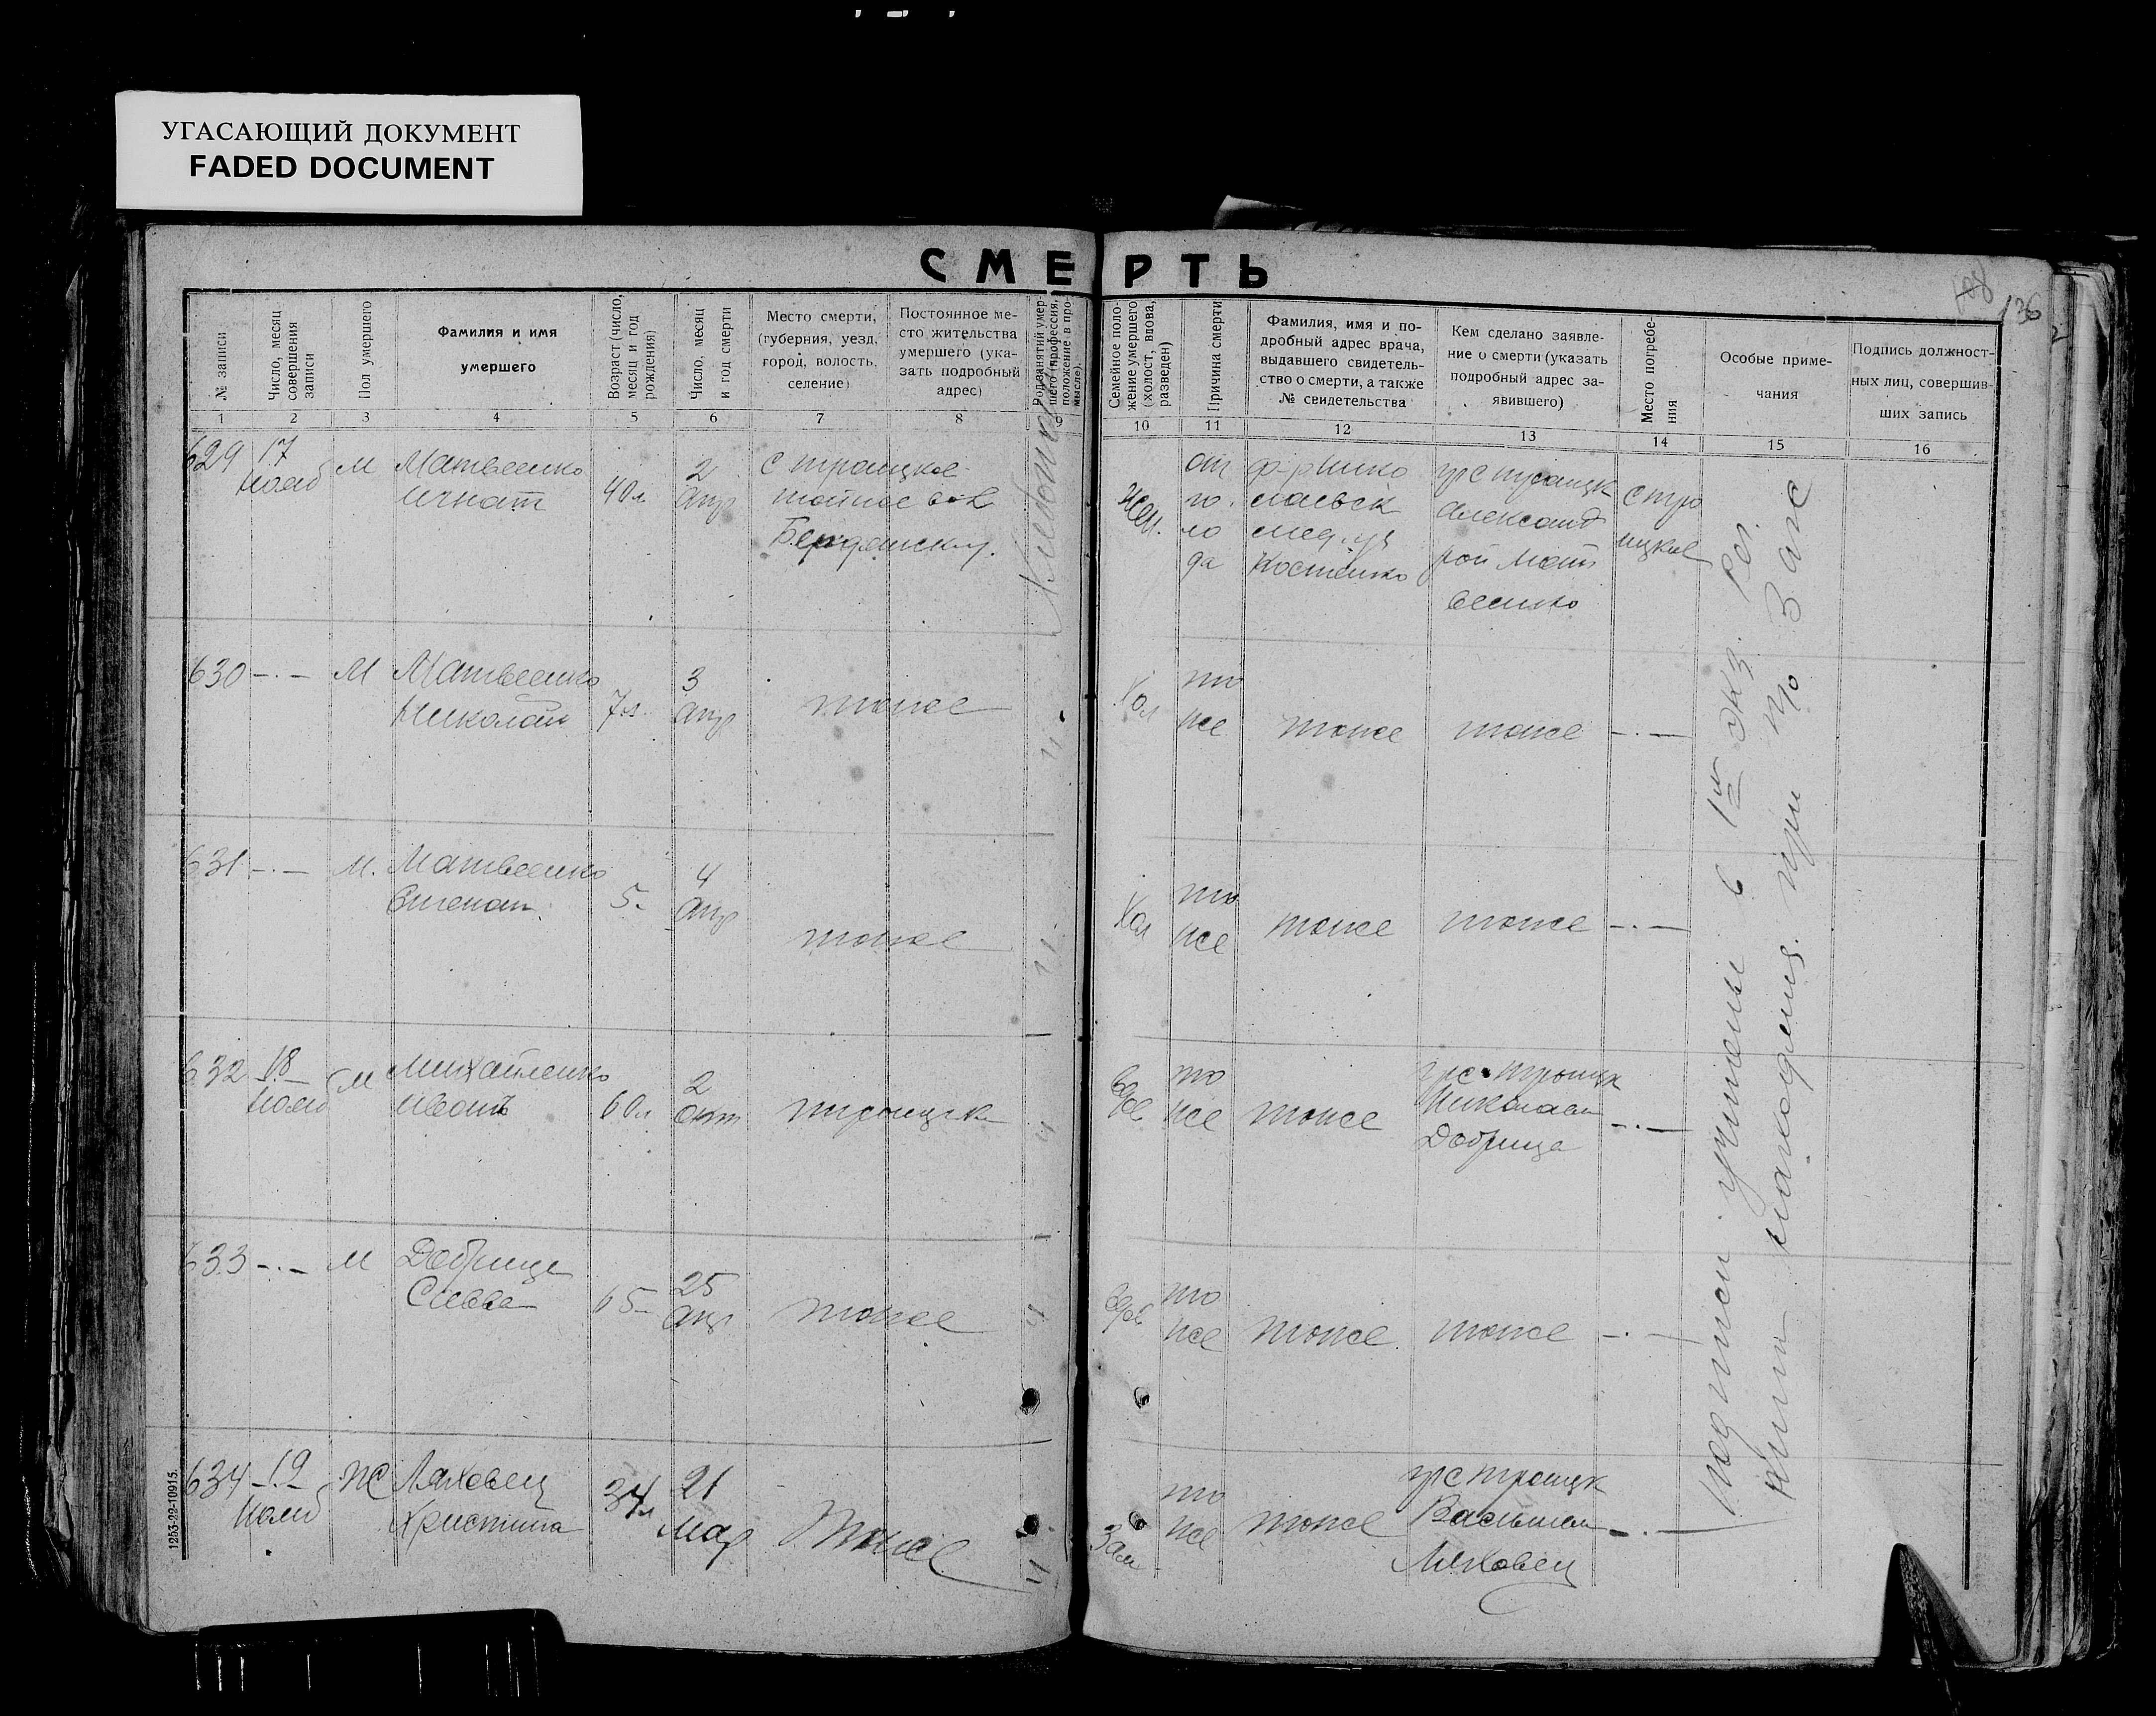 УГАСАЮЩИЙ ДОКУМЕНТ
FADED DOCUMENT
СМЕРТЬ
108
136
№ записи
Число, месяц
совершения
записи
Пол умершего
Фамилия и имя
умершего
Возраст (число,
месяц и год
рождения)
Число, месяц
и год смерти
Место смерти,
(губерния, уезд,
город, волость,
селение)
Постоянное ме-
сто жительства
умершего (ука-
зать подробный
адрес)
Род занятий умер-
шего (профессия,
положение в про-
мысле).
Семейное поло-
жение умершего
(холост, вдова,
разведен)
Причина смерти
Фамилия, имя и по-
дробный адрес врача,
выдавшего свидетель-
ство о смерти, а также
№ свидетельства
Кем сделано заявле-
ние о смерти (указать
подробный адрес за-
явившего)
Место погребе-
ния
Особые приме-
чания
Подпись должност-
ных лиц, совершив-
ших запись
1 2 3 4 5 6 7 8 9 10 11 12 13 14 15 16
629 17 М Матвеенко
Игнат 40л 2
Апр с троицкое
тойже вол
Бердянск у.
Хлебопаш
Жен. от
го
ло
да
Костенко
гр с троицк
Александ
рой Мат
веенко
с тро
ицкое
630 -.- М Матвеенко
Николай 7л. 3
Апр тоже
Хол то
же тоже тоже -.-
631 -.- М. Матвеенко
Степан 5- 4
Апр тоже
Хол то
же тоже тоже -.-
632 18 М Михайленко
Иванъ 60л 2
троицк
вдов то
же тоже гр с троицк
Николаем
Добрица -.-
633 -.- М Добрица
Савва 65- 25
Апр тоже
вдов то
же тоже тоже -.-
634 19 Ж Ляховец
Христина 34л 21
Мар Тоже
Зам то
же тоже гр с троицк
Васылем
Ляховец -.-
Подписи учинены в 1м экз. Рег.
книги находящ. при Т/о Загс
1253-22-10915.